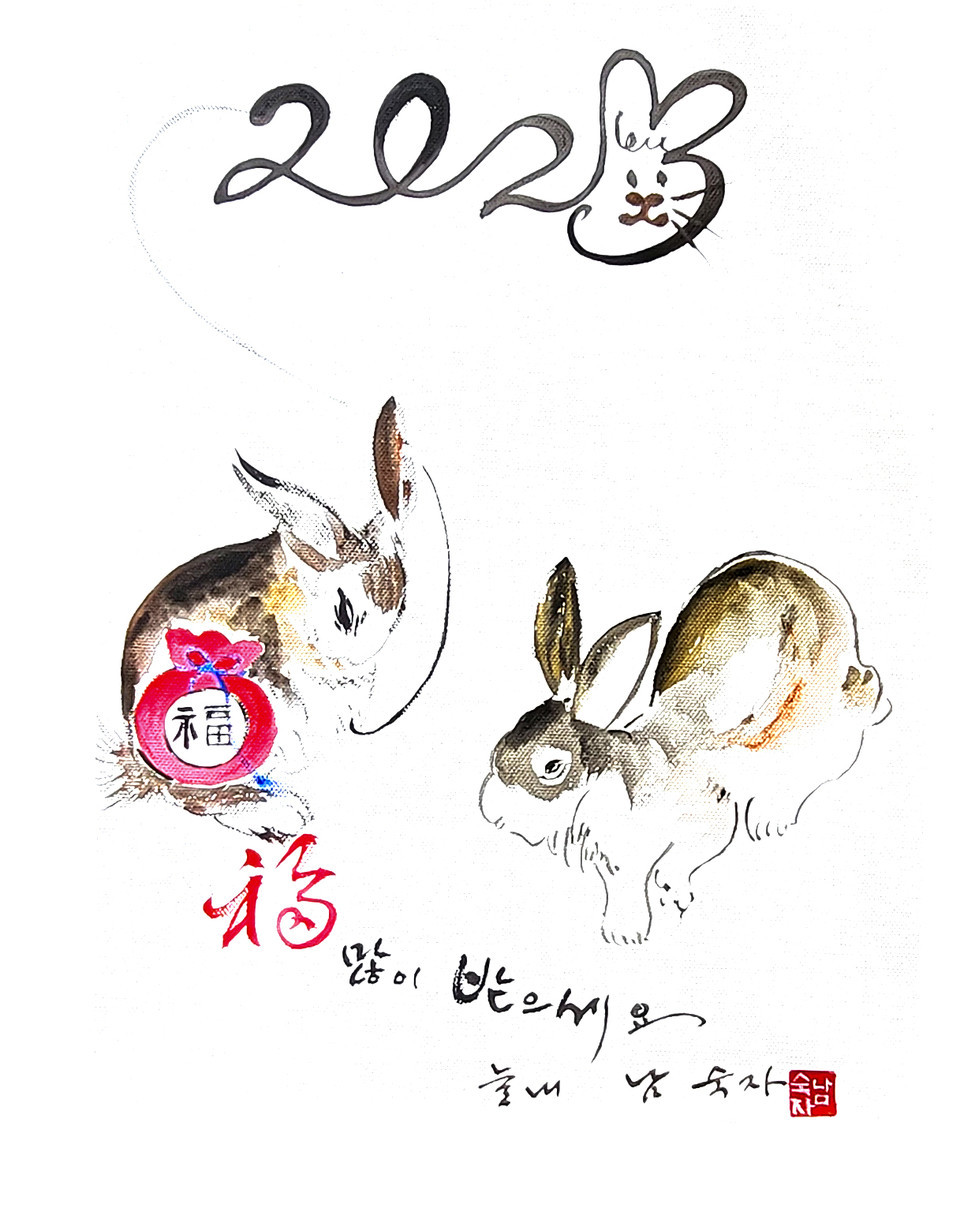 2023
福
福 많이 받으세요
늘내 남숙자
남숙자